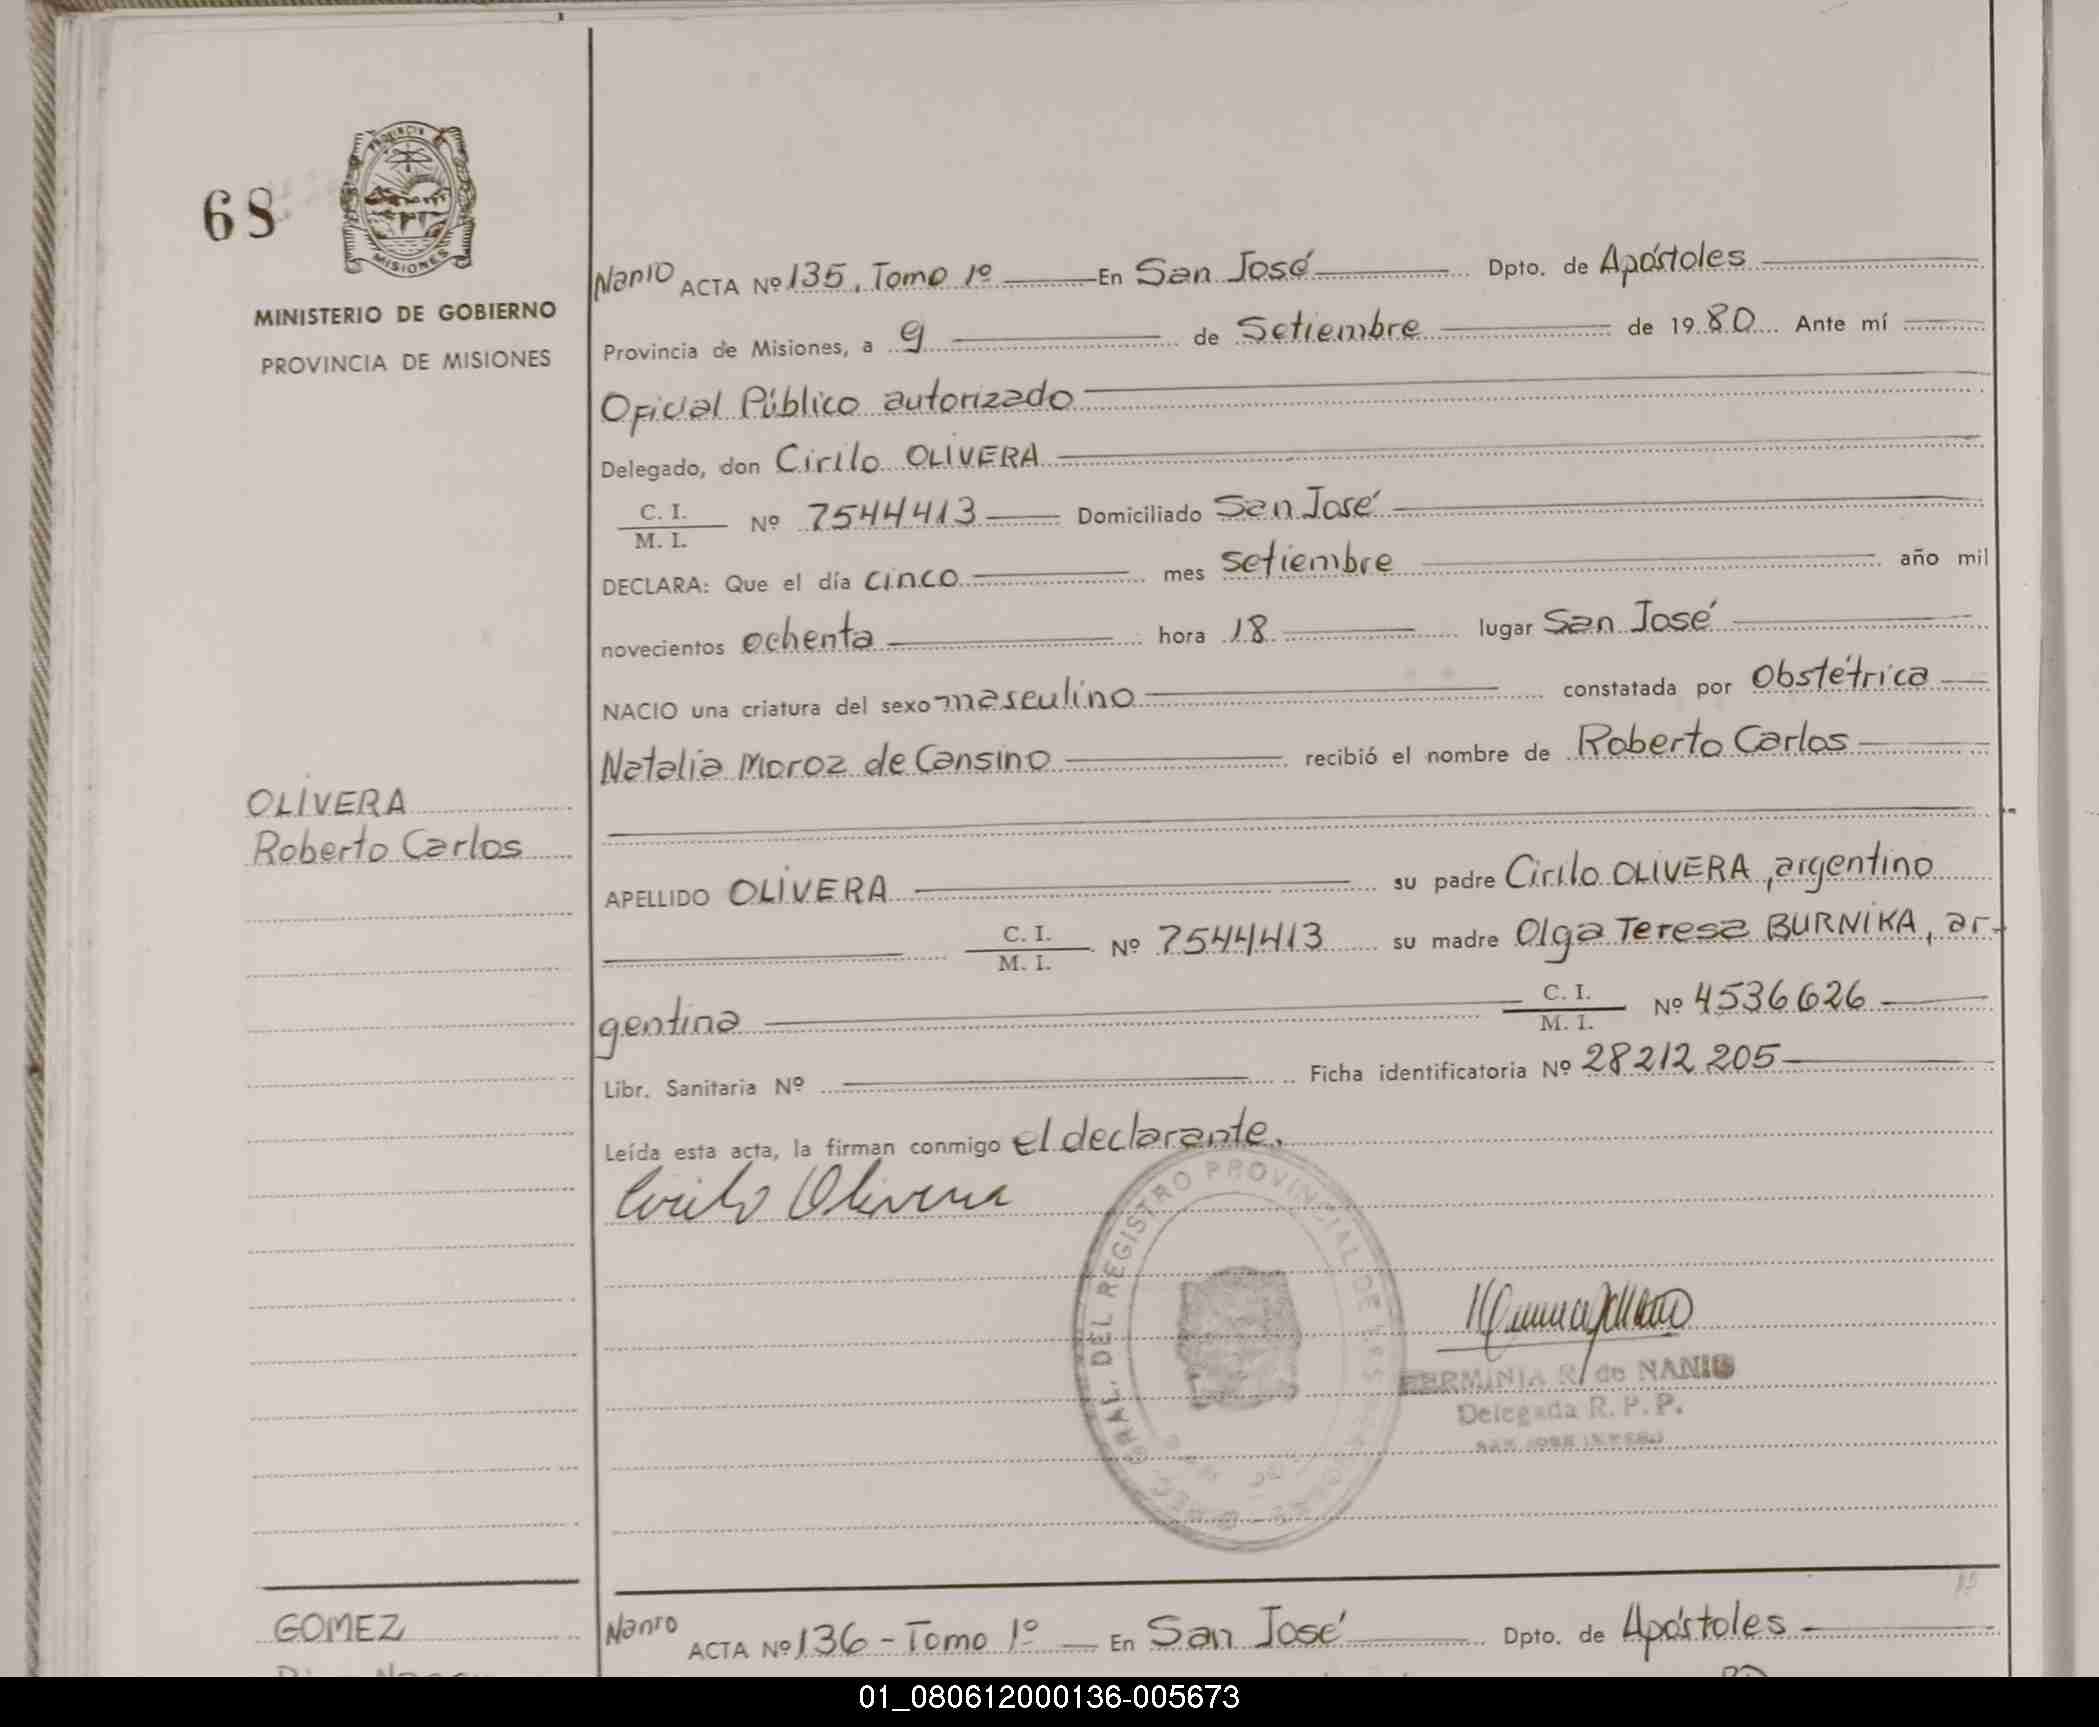 68
PROVINCIA
MISIONES
MINISTERIO DE GOBIERNO
PROVINCIA DE MISIONES
Nanio ACTA Nº 135, Tomo 1º En San José Dpto. de Apóstoles
Provincia de Misiones, a 9 de Setiembre de 1980 Ante mí
Oficial Público autorizado
Delegado, don Cirilo OLIVERA
C. I.
M. I. Nº 7544413 Domiciliado San José
DECLARA: Que el día cinco mes setiembre año mil
novecientos ochenta hora 18 lugar San José
NACIO una criatura del sexo masculino constatada por Obstétrica
Natalia Moroz de Cansino recibió el nombre de Roberto Carlos
OLIVERA
Roberto Carlos
APELLIDO OLIVERA su padre Cirilo OLIVERA, argentino
C. I.
M. I. Nº 7544413 su madre Olga Teresa BURNIKA, ar-
gentina C. I.
M. I. Nº 4536626
Libr. Sanitaria Nº Ficha identificatoria Nº 28212205
Leída esta acta, la firman conmigo el declarante.
Cirilo Olivera
GRAL. DEL REGISTRO PROVINCIAL DE
HERMINIA R. de NANIO
Delegada R. P. P.
GOMEZ
Nanio ACTA Nº 136 - Tomo 1º En San José Dpto. de Apóstoles
01_080612000136-005673